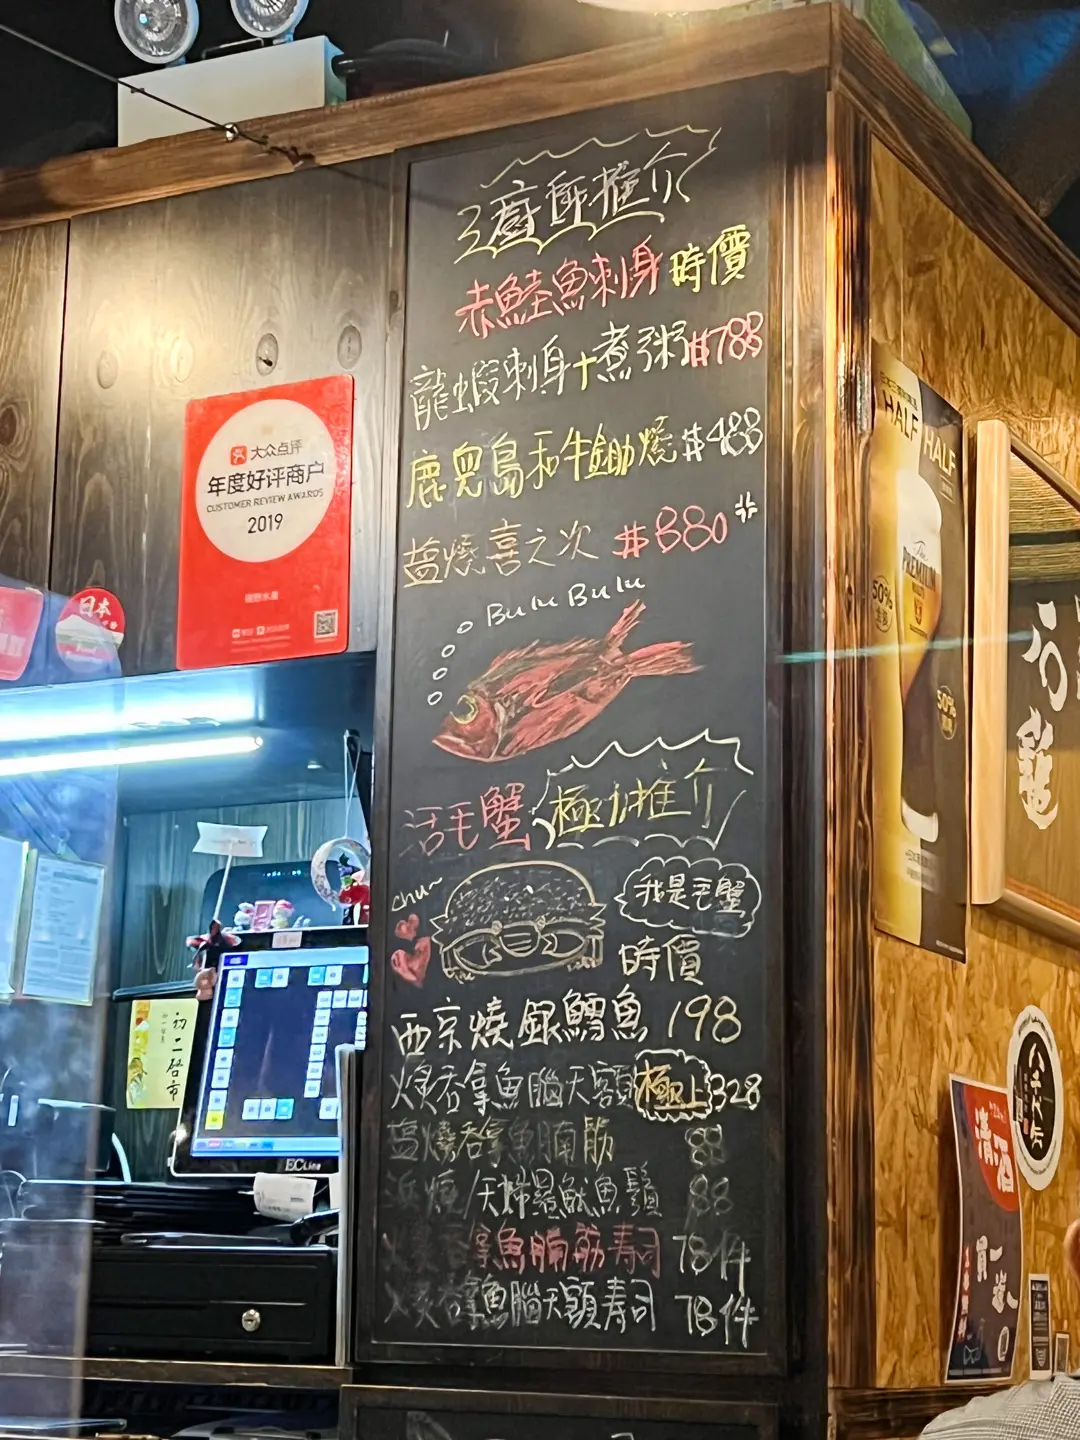 廚師推介
赤鮭魚刺身 時價
龍蝦刺身+煮粥 $788
鹿兒島和牛鋤燒 $488
盐燒喜之次 $880
Bulu Bulu
活毛蟹 極力推介
chu~
我是毛蟹
時價
西京燒銀鱈魚 198
吞拿魚腦天 極上 328
盐燒吞拿魚腩筋 88
燒/天婦羅魷魚鬚 88
吞拿魚腩筋寿司 78件
吞拿魚腦天 寿司 78件
大众点评
年度好评商户
CUSTOMER REVIEW AWARDS
2019
日本
初二啓市
ECLine
HALF HALF
The PREMIUM
50%
50%
清酒
買一送一